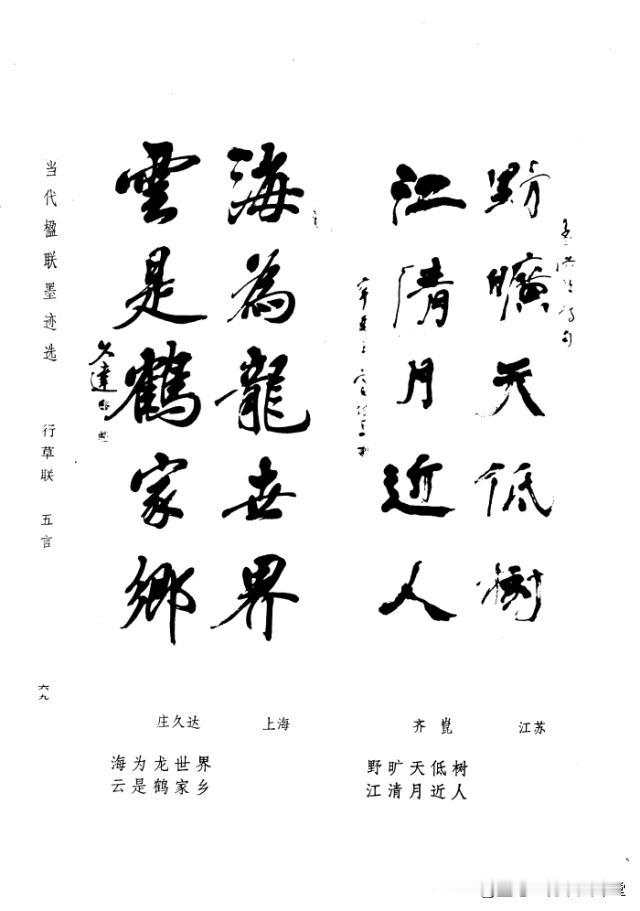 野曠天低樹
江清月近人
海為龍世界
雲是鶴家鄉
久達
当代楹联墨迹选
行草联 五言
六九
江苏
齐崑
野旷天低树
江清月近人
上海
庄久达
海为龙世界
云是鹤家乡